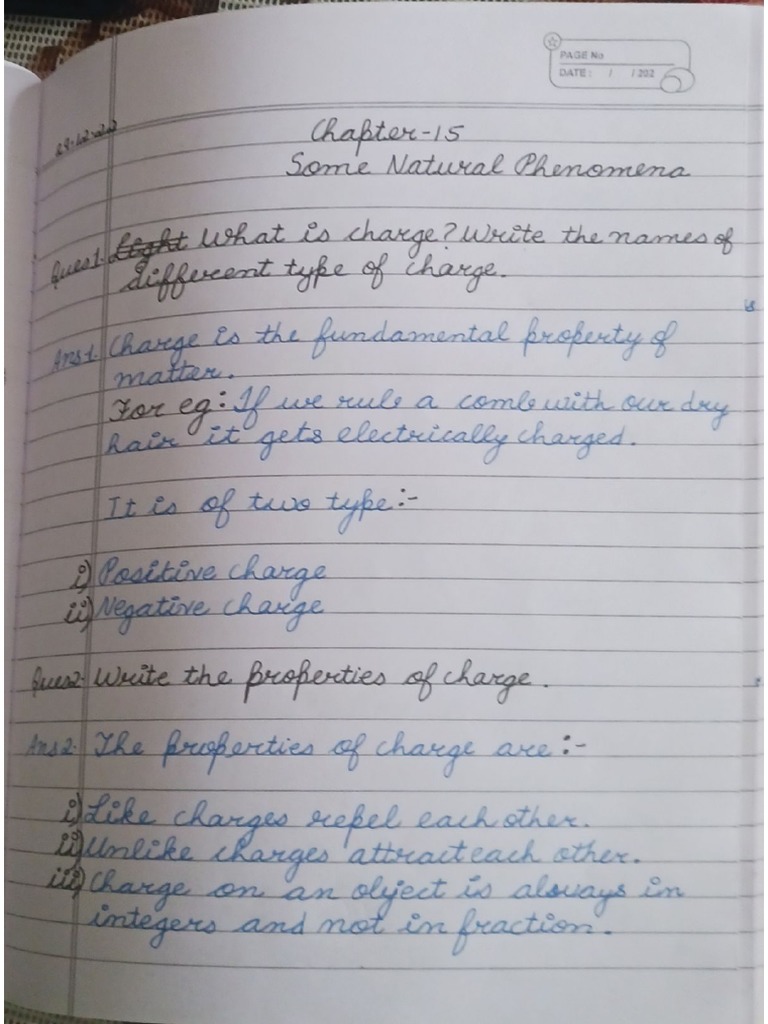 PAGE No
DATE: / /202
29-12-22
Chapter-15
Some Natural Phenomena
Ques1. Light What is charge? Write the names of
different type of charge.
Ans1. Charge is the fundamental property of
matter.
For eg: If we rub a comb with our dry
hair it gets electrically charged.
It is of two type:-
i) Positive charge
ii) Negative charge
Ques2. Write the properties of charge.
Ans2. The properties of charge are:-
i) Like charges repel each other.
ii) Unlike charges attract each other.
iii) Charge on an object is always in
integers and not in fraction.